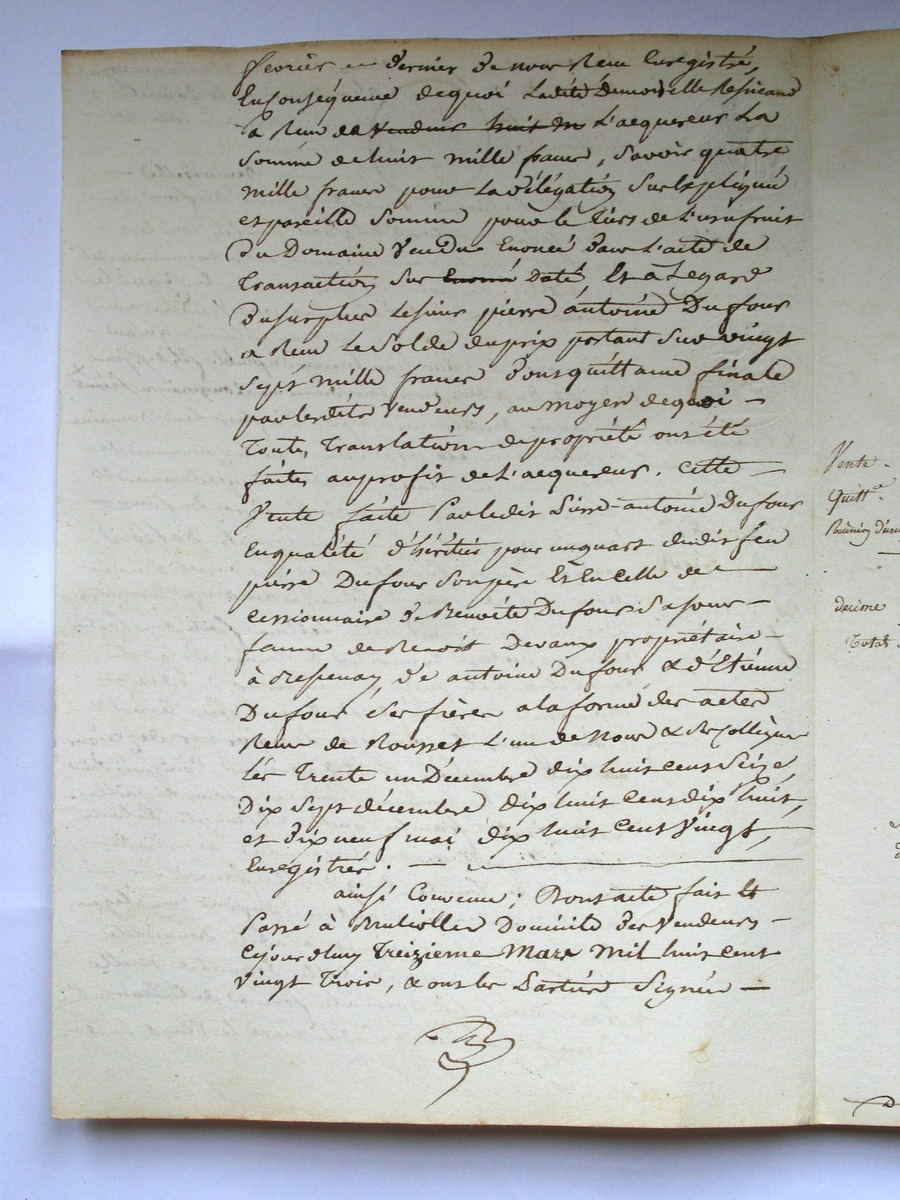 février dernier de nous Reçu Enregistré,
En Conséquence de quoi Ladite Demoiselle
à Reçu de vendeurs huit m L'acquereur La
Somme de huit mille francs, Savoir quatre
mille francs pour La délégation Sus Expliquée
et pareille Somme pour le tiers de L'usufruit
du Domaine Vendu Enoncé dans L'acte de
transaction Sus Enoncé Daté, Et à Legard
du surplus Lesieur pierre antoine Dufour
a Reçu Le Solde du prix portant Sur vingt
Sept mille francs Dont quittance finale
par Lesdits Vendeurs, au moyen de quoi —
toute, translation de propriété ont été
faites au profit de L'acquereur. Cette —
Vente faite Par ledit Pierre-antoine Dufour
En qualité d'héritier pour un quart dudit feu
pierre Dufour Son père Et En Celle de —
Cessionnaire de Benoite Dufour Sa sœur —
femme de Benoit Devaux propriétaire —
à, de antoine Dufour & d'Etienne
Dufour Ses frères a la forme des actes
Reçus de Rousset L'un de Nous & Son Collègue
Les trente un Décembre dix huit cent Seize
Dix Sept décembre dix huit Cent dix huit,
et dix neuf mai dix huit Cent Vingt,
Enregistrés. —
ainsi Convenu; Dont acte fait Et
Passé à Domicile des Vendeurs —
Cejourd'huy treizieme Mars Mil huit cent
Vingt trois, & ont les Parties Signée —
Vente.
Quittce
Réunion d'usu
decime
Total.